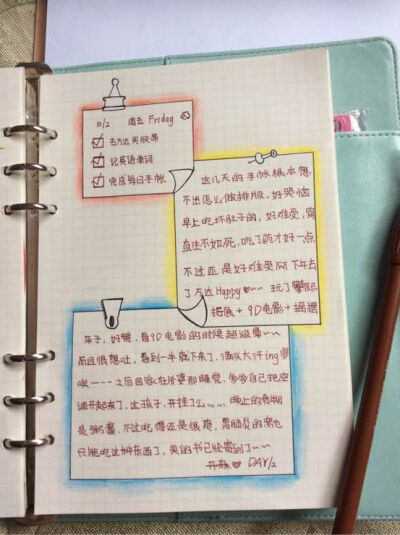 10/2 周五 Friday
去万达买胶带
记英语单词
完成每日手帐
这几天的手帐根本想
不出怎么做排版，好苦恼
早上吃坏肚子的，好难受，简
直生不如死，吃了药才好一点
不过还是好难受 下午去
了万达Happy～～ 玩了攀爬
拓展+9D电影+摇摆
车子，好嗨，看9D电影的时候超级晕～～
而且很想吐，看到一半就下来了，满头大汗ing
之后回家在沙发那睡觉，多多自己把空
调开起来了，这孩子，开挂了么……晚上的食物
是粥 不过吃得还是很爽，胃肠炎的
只能吃这种东西了，买的书已经寄到了～～
DAY/2